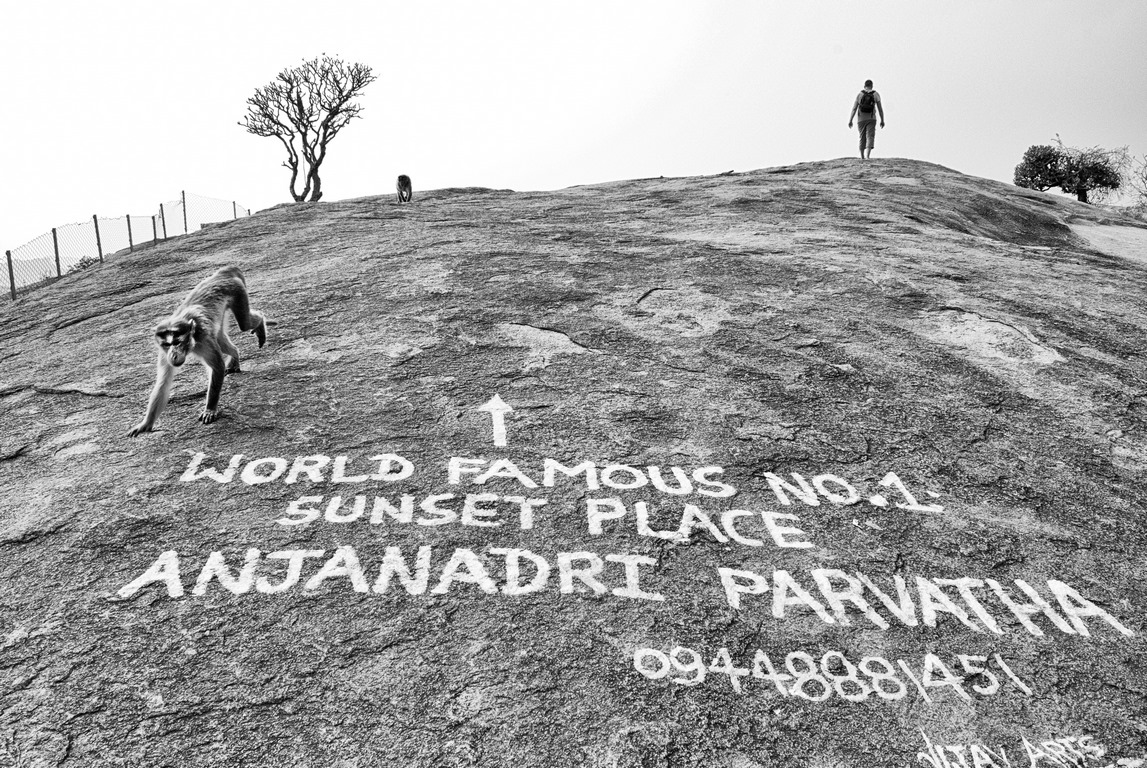 WORLD FAMOUS NO.1.
SUNSET PLACE
ANJANADRI PARVATHA
09448881451
VIJAY ARTS